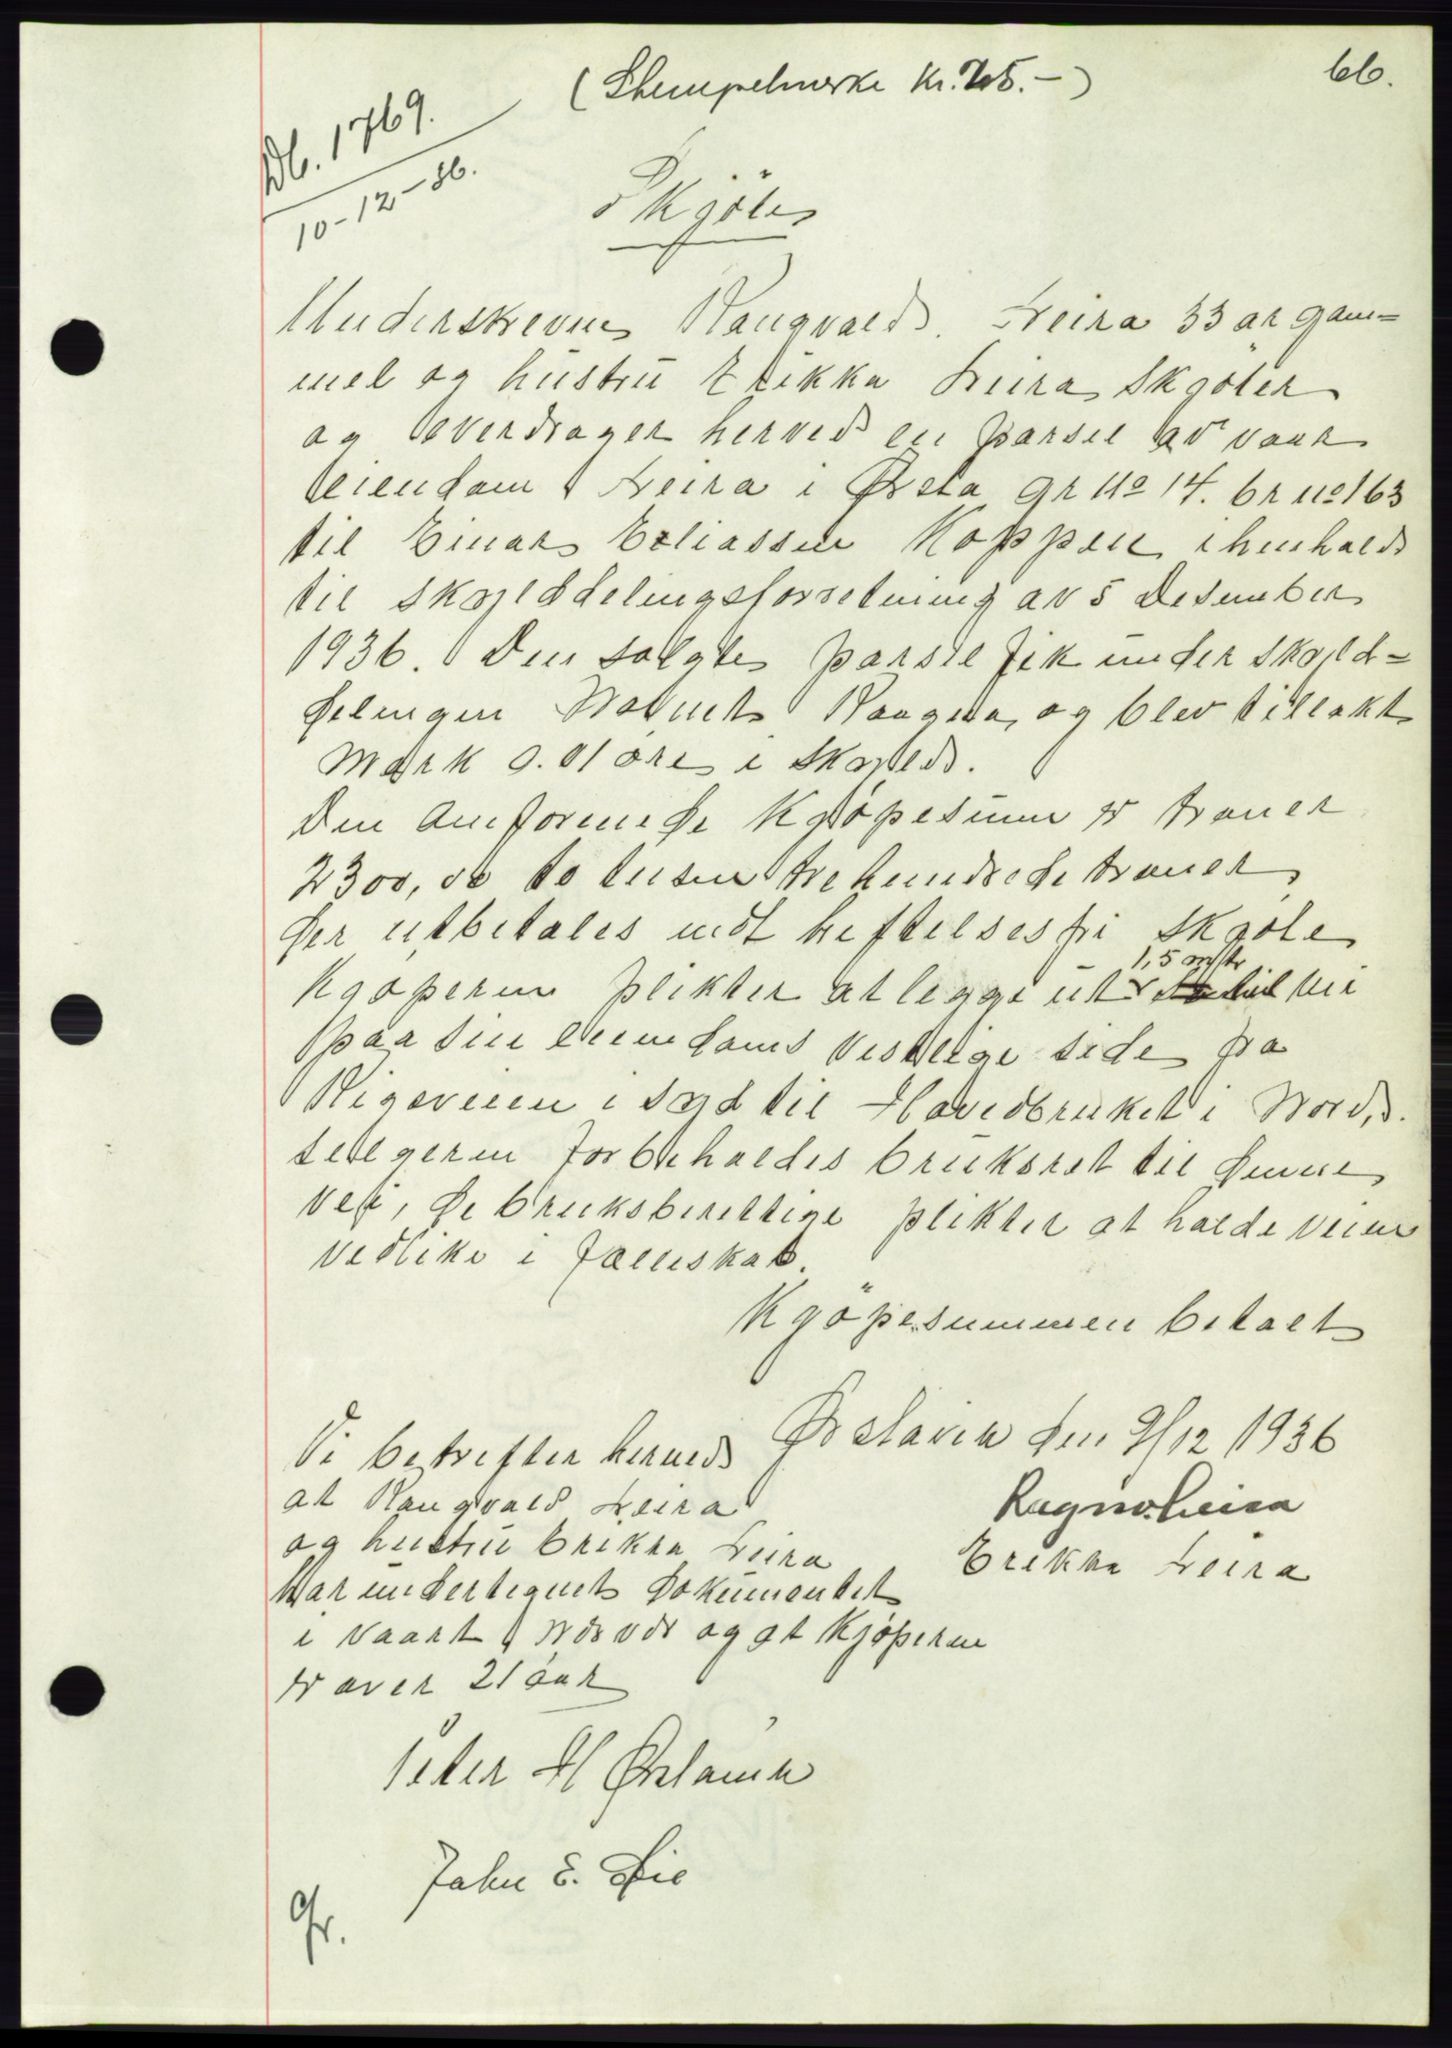 66.
(Stempelmerke kr. 25.-)
Db. 1769.
10-12-36.
Skjöte
Underskrevne Rangvald Leira 33 ar gam=
mel og hustru Erikka Leira skjøter
og overdrager herved en parsel av vaar
eiendom Leira i Ørsta gr no 14. br no 163
til Einar Eliassen Koppen ihenhold
til skylddelingsforretning av 5 Desember
1936. Den solgte parsel fik under skyld=
delingen navnet og blev tillakt
Mark 0.01 øre i skyld.
Den omforenede Kjöpesum er kroner
2300,00 to tusen trehundrede kroner
der utbetales mot heftelsesfri skjøte
1,5 mtr
Kjøperen plikter at legge ut vei
paa sin eiendoms vestlige side fra
Rigsveien i syd til Hovedbruket i Nord,
selgeren forbeholdes bruksret til denne
vei, de bruksberettige plikter at holde veien
vedlike i fælleskab.
Kjöpesummen betalt
Ørstavik den 9/12 1936
Ragnv. Leira
Erikka Leira
Vi bekrefter herved
at Rangvald Leira
og hustru Erikka Leira
har undertegnet dokumentet
i vaart nærvær og at kjøperen
er over 21 aar
Peter H Ørstavik
John E.